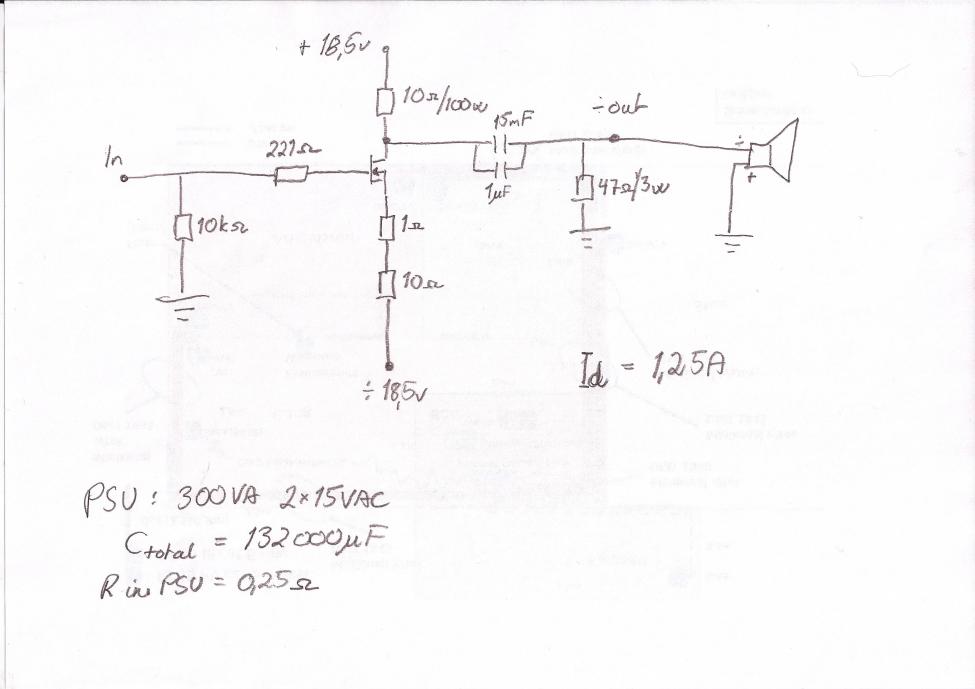 + 18,5v
10Ω/100w
15mF
÷out
In
221Ω
÷
+
1µF
47Ω/3w
10kΩ
1Ω
10Ω
÷ 18,5v
Id = 1,25A
PSU : 300VA 2×15VAC
Ctotal = 132000µF
R in PSU = 0,25Ω